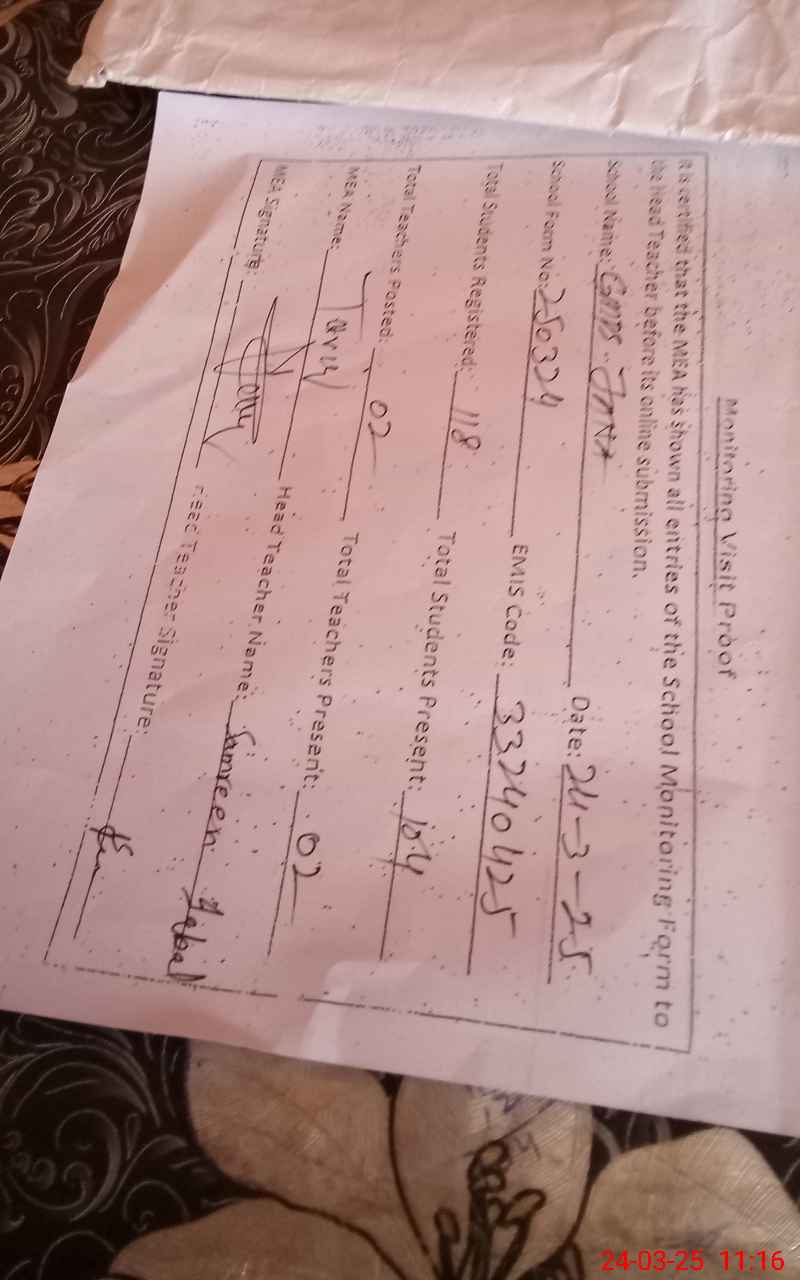 Monitoring Visit Proof
It is certified that the MEA has shown all entries of the School Monitoring Form to
the Head Teacher before its online submission.
School Name: Date: 24-3-25
School Form No: 250324 EMIS Code: 33240425
Total Students Registered: 118 Total Students Present: 104
Total Teachers Posted: 02 Total Teachers Present: 02
MEA Name: Head Teacher Name: Samreen Iqbal
MEA Signature: Head Teacher Signature:
24-03-25 11:16